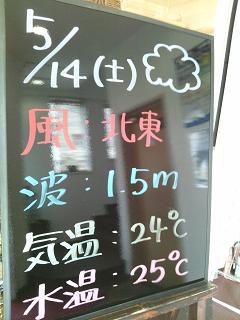 5/14(土)
風:北東
波:1.5m
気温:24℃
水温:25℃